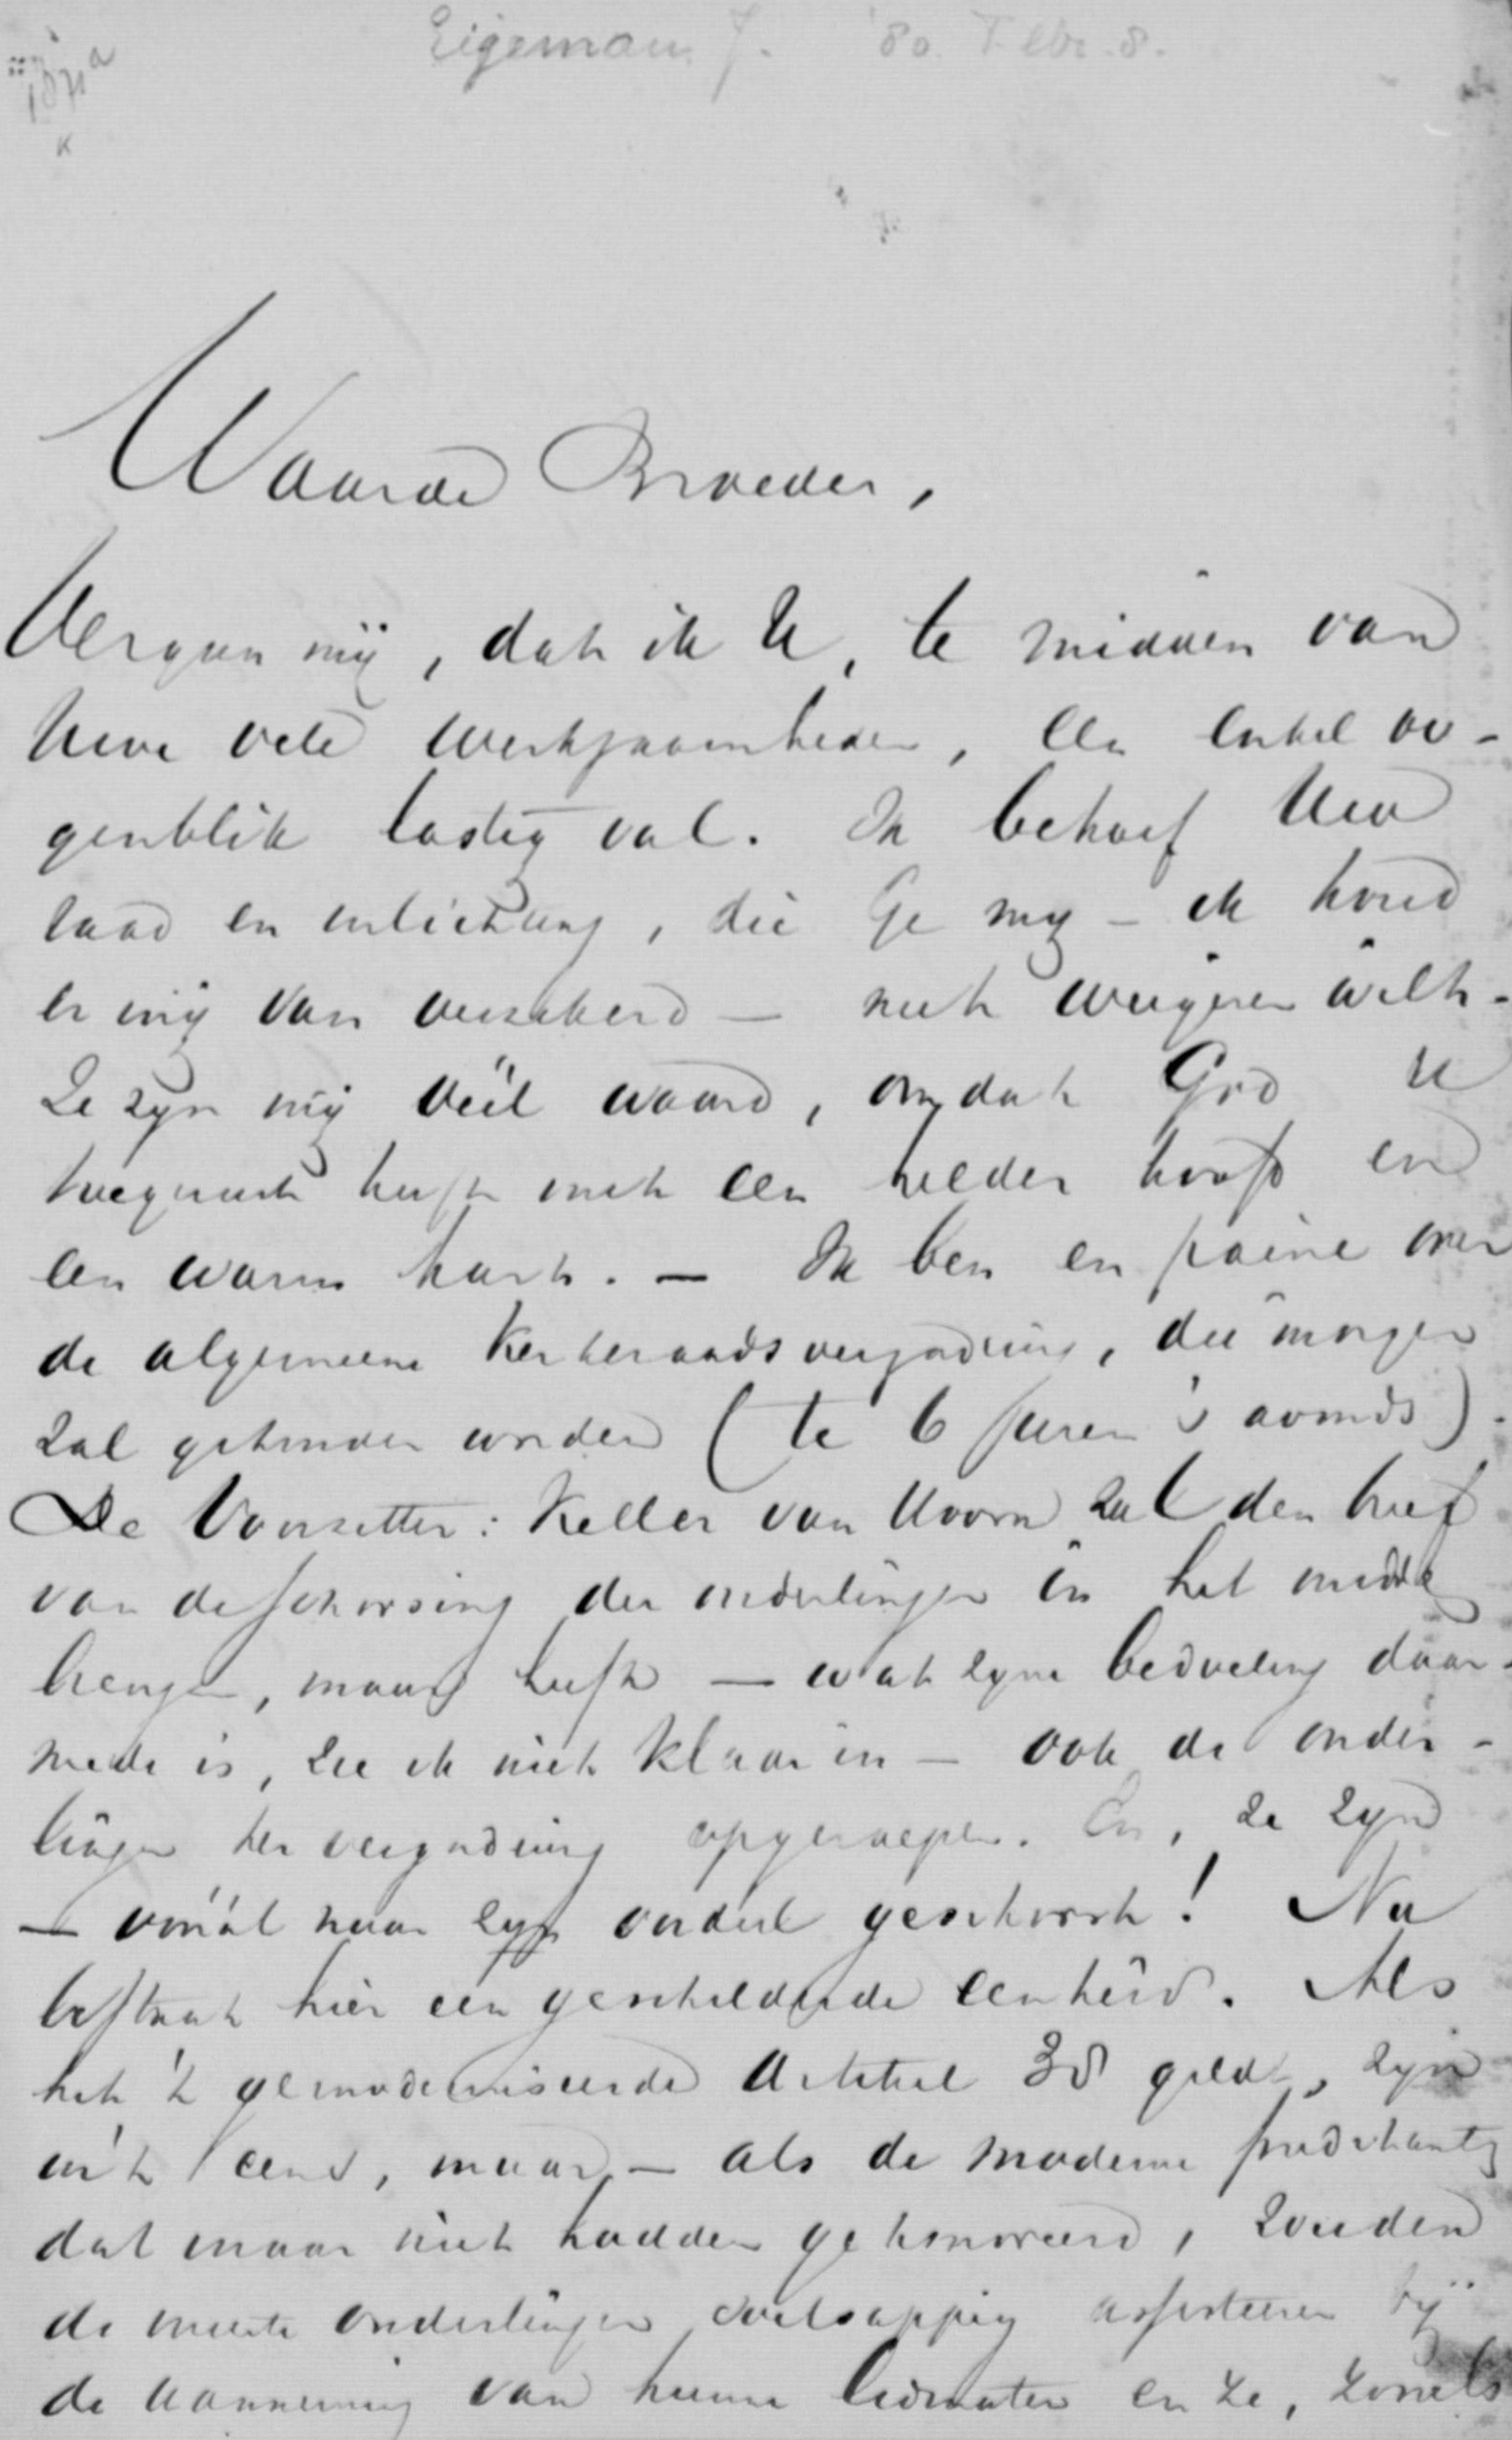 Eigeman J. '80 Febr. 8.
1871a
K
Waarde Broeder,
Vergun mij, dat ik U, te midden van
Uwe vele werkzaamheden, een enkel oo-
genblik lastig val. Ik behoef Uw
raad en inlichting, die Ge mij - ik houd
er mij van verzekerd - niet weigeren wilt.
Ze zijn mij véél waard, omdat God U
toegerust heeft met een helder hoofd en
een warm hart. - Ik ben en peine over
de algemeene Kerkeraadsvergadering, die morgen
zal gehouden worden (te 6 uren 's avonds).
De Voorzitter: Keller van Hoorn zal den brief
van de schorsing der ouderlingen in het midden
brengen, maar heeft - wat zijne bedoeling daar-
mede is, zie ik niet klaar in - ook de ouder-
lingen ter vergadering opgeroepen. En, ze zijn
- vooral naar zijn oordeel geschorst! Nu
bestaat hier een verschillende eenheid. Als
het 't gemoderniseerde Artikel 38 geldt, zijn
wij 't eens, maar - als de moderne predikants
dat maar niet hadden gehonoreerd, zouden
de meeste ouderlingen doodsappig assisteeren bij
de aanneming van hunne lidmaten en ze, zooals